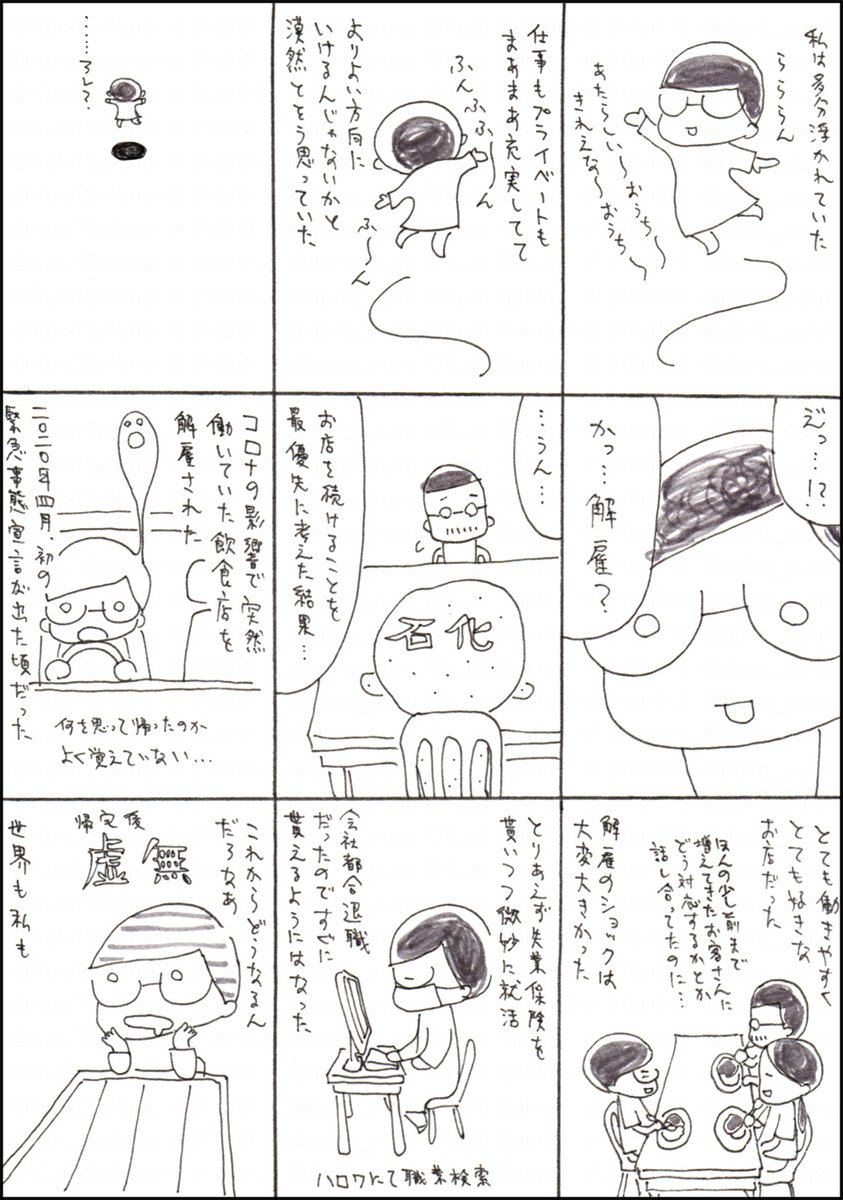 私は多分浮かれていた
らららん
あたらしい〜おうち〜
きれえな〜おうち〜
仕事もプライベートも
まあまあ充実してて
ふんふふ〜ん
ふ〜ん
よりよい方向に
いけるんじゃないかと
漠然とそう思っていた
……アレ?
えっ…!?
かっ…解雇?
…うん…
石化
お店を続けることを
最優先に考えた結果…
コロナの影響で突然
働いていた飲食店を
解雇された
二〇二〇年四月、初の
緊急事態宣言が出た頃だった
何を思って帰ったのか
よく覚えていない…
とても働きやすく
とても好きな
お店だった
ほんの少し前まで
増えてきたお客さんに
どう対応するかとか
話し合ってたのに…
解雇のショックは
大変大きかった
とりあえず失業保険を
貰いつつ微妙に就活
会社都合退職
だったのですぐに
貰えるようにはなった
ハロワにて職業検索
これからどうなるん
だろなあ
帰宅後
虚無
世界も私も